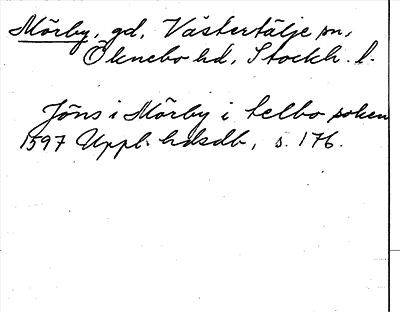 Mörby, gd, Västertälje sn,
Öknebo hd, Stockh. l.
Jöns i Mörby i telbo soken
1597 Uppl. hdsdb, s. 176.